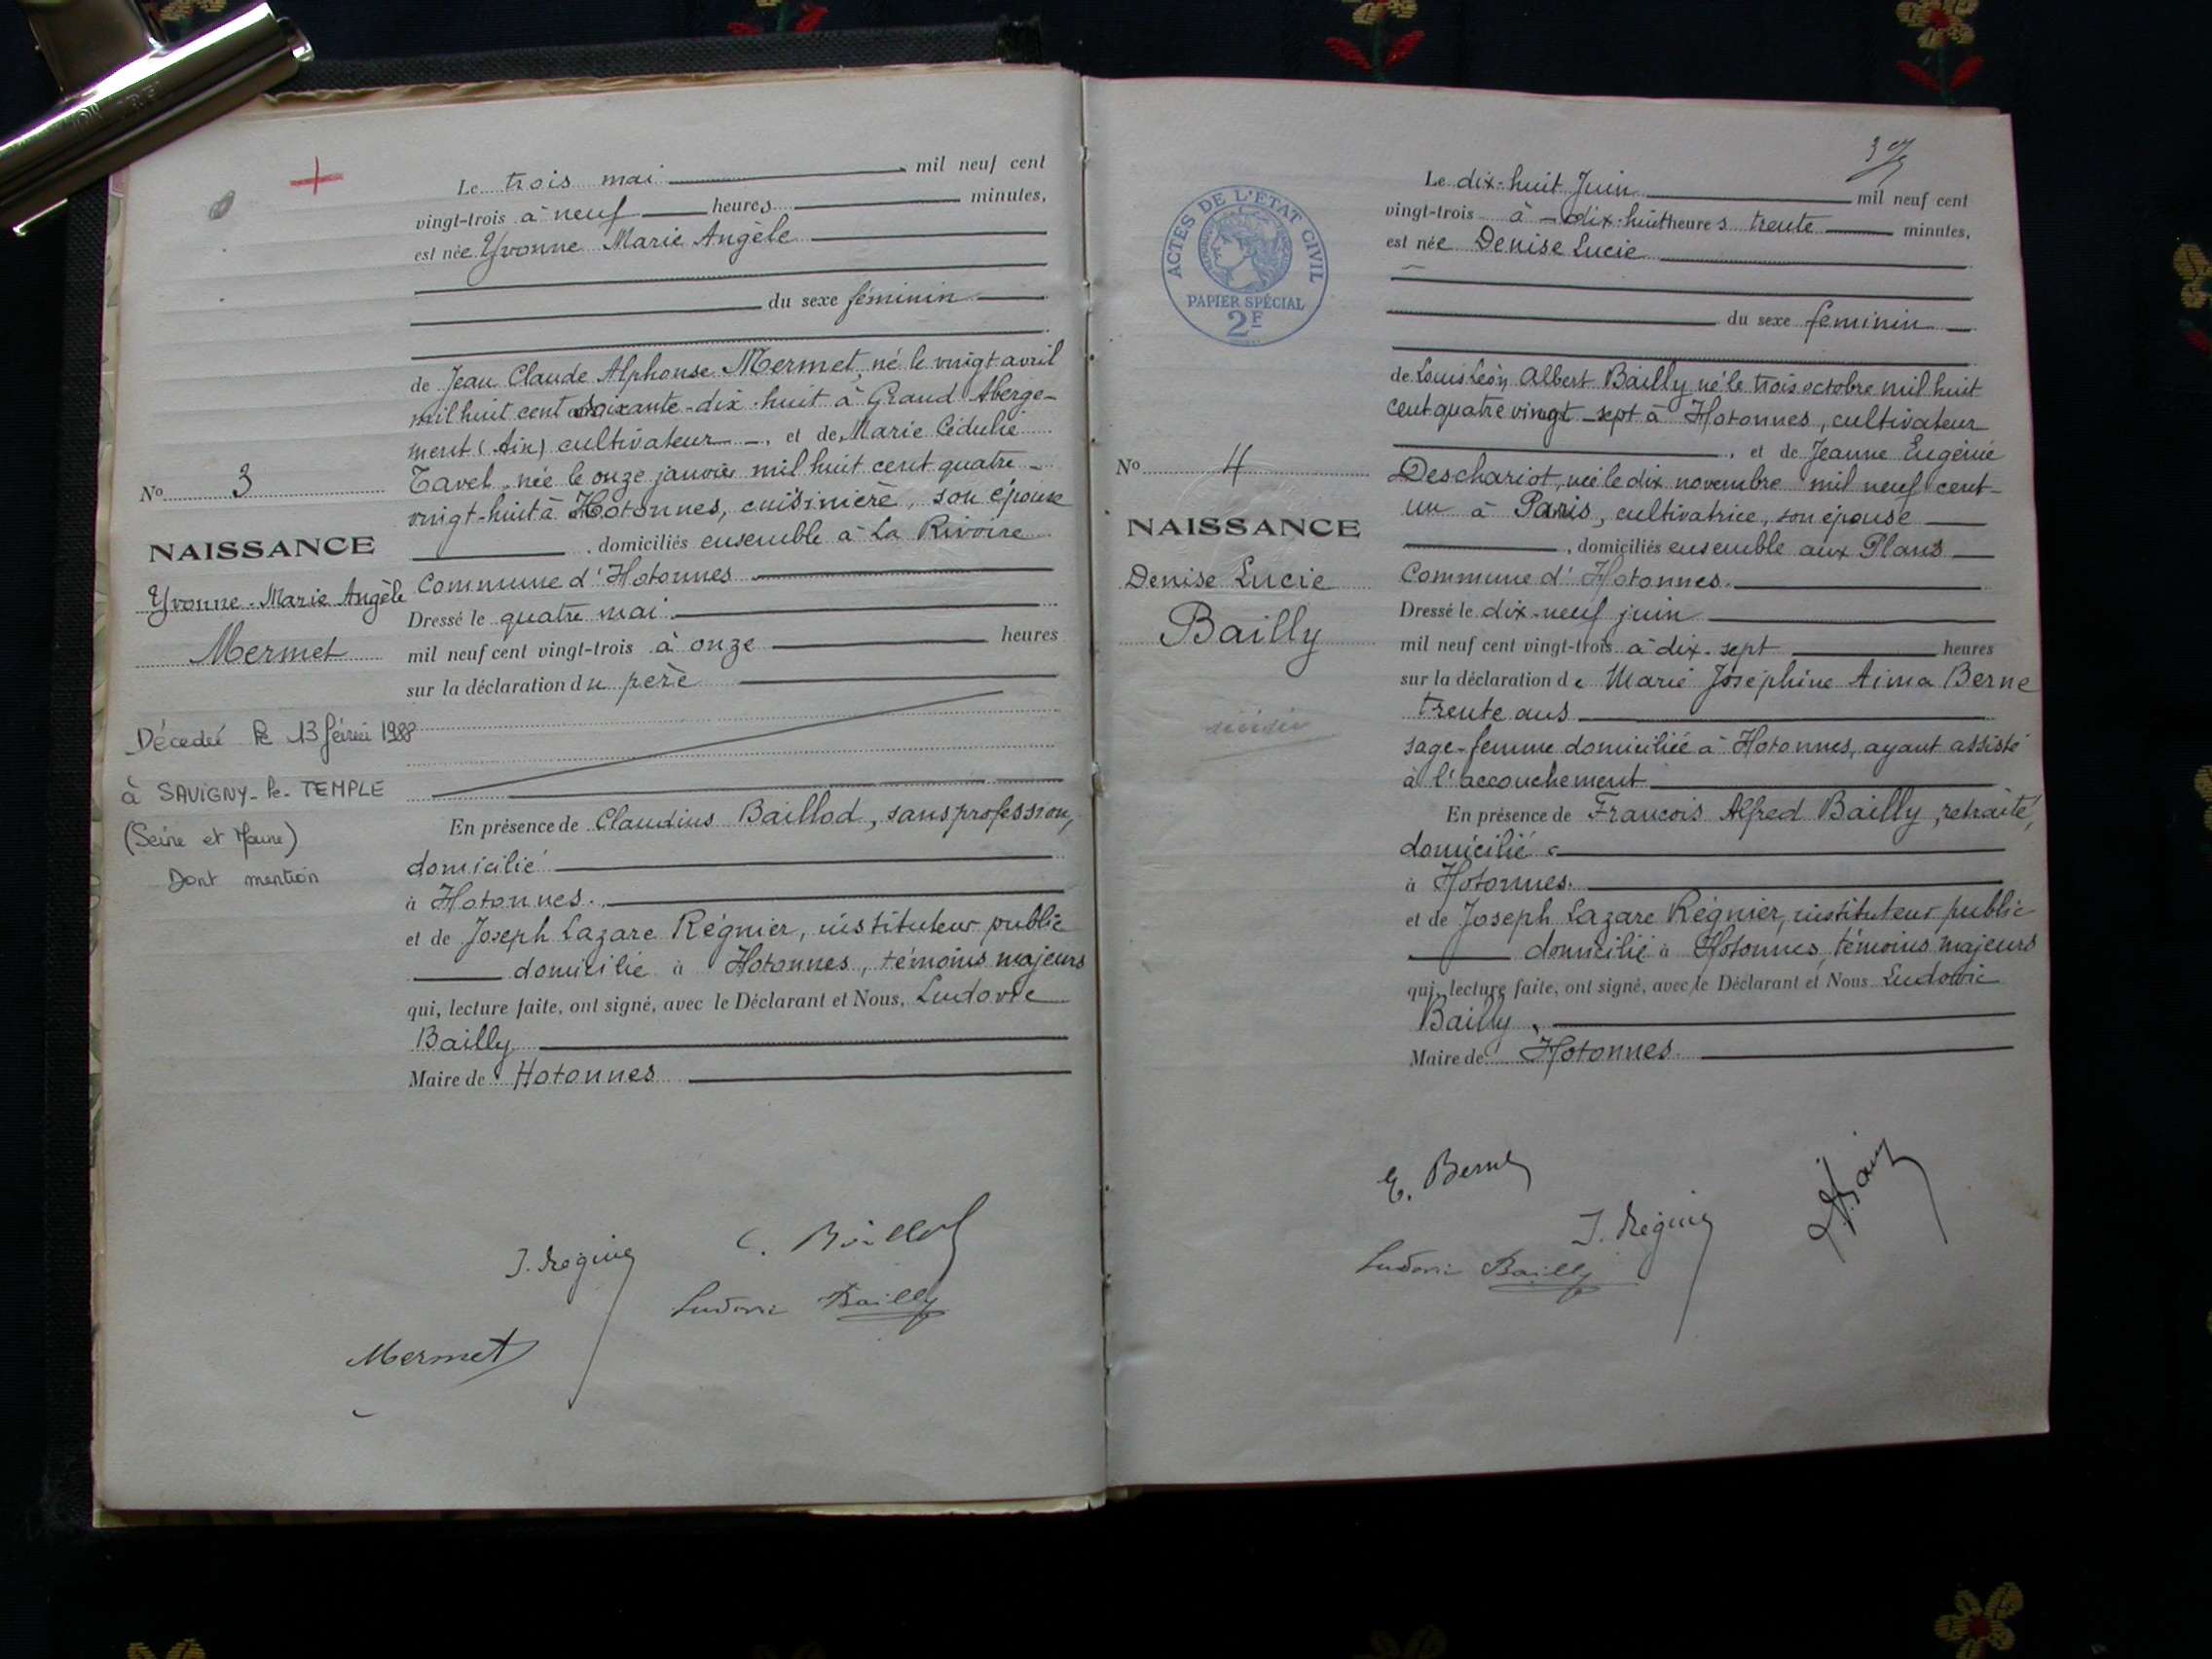 Le trois mai mil neuf cent
vingt-trois à neuf heures minutes,
est née Yvonne Marie Angèle
du sexe féminin
de Jean Claude Alphonse Mermet, né le vingt avril
mil huit cent soixante-dix-huit à Grand Aberge-
ment (Ain) cultivateur, et de Marie Cédulie
Tavel, née le onze janvier mil huit cent quatre-
vingt-huit à Hotonnes, cuisinière, son épouse
, domiciliés ensemble à La Rivoire
Commune d'Hotonnes
Dressé le quatre mai
mil neuf cent vingt-trois à onze heures
sur la déclaration du père
En présence de Claudius Baillod, sans profession,
domicilié
à Hotonnes.
et de Joseph Lazare Régnier, instituteur public
domicilié à Hotonnes, témoins majeurs
qui, lecture faite, ont signé, avec le Déclarant et Nous, Ludovic
Bailly
Maire de Hotonnes
No 3
NAISSANCE
Yvonne-Marie Angèle
Mermet
Décédée le 13 février 1988
à SAVIGNY-le-TEMPLE
(Seine et Marne)
Dont mention
J. Régnier
C. Baillod
Ludovic Bailly
Mermet
ACTES DE L'ETAT CIVIL
PAPIER SPÉCIAL
2F
Le dix-huit Juin mil neuf cent
vingt-trois à dix-huit heures trente minutes,
est née Denise Lucie
du sexe féminin
de Louis Léon Albert Bailly né le trois octobre mil huit
cent quatre vingt-sept à Hotonnes, cultivateur
, et de Jeanne Eugénie
Deschariot, née le dix novembre mil neuf cent-
un à Paris, cultivatrice, son épouse
, domiciliés ensemble aux Plans
Commune d'Hotonnes.
Dressé le dix-neuf juin
mil neuf cent vingt-trois à dix-sept heures
sur la déclaration de Marie Joséphine Aima Berne
trente ans
sage-femme domiciliée à Hotonnes, ayant assisté
à l'accouchement
En présence de Francois Alfred Bailly, retraité,
domicilié
à Hotonnes.
et de Joseph Lazare Régnier, instituteur public
domicilié à Hotonnes, témoins majeurs
qui, lecture faite, ont signé, avec le Déclarant et Nous Ludovic
Bailly,
Maire de Hotonnes
No 4
NAISSANCE
Denise Lucie
Bailly
E. Berne
J. Régnier
Ludovic Bailly